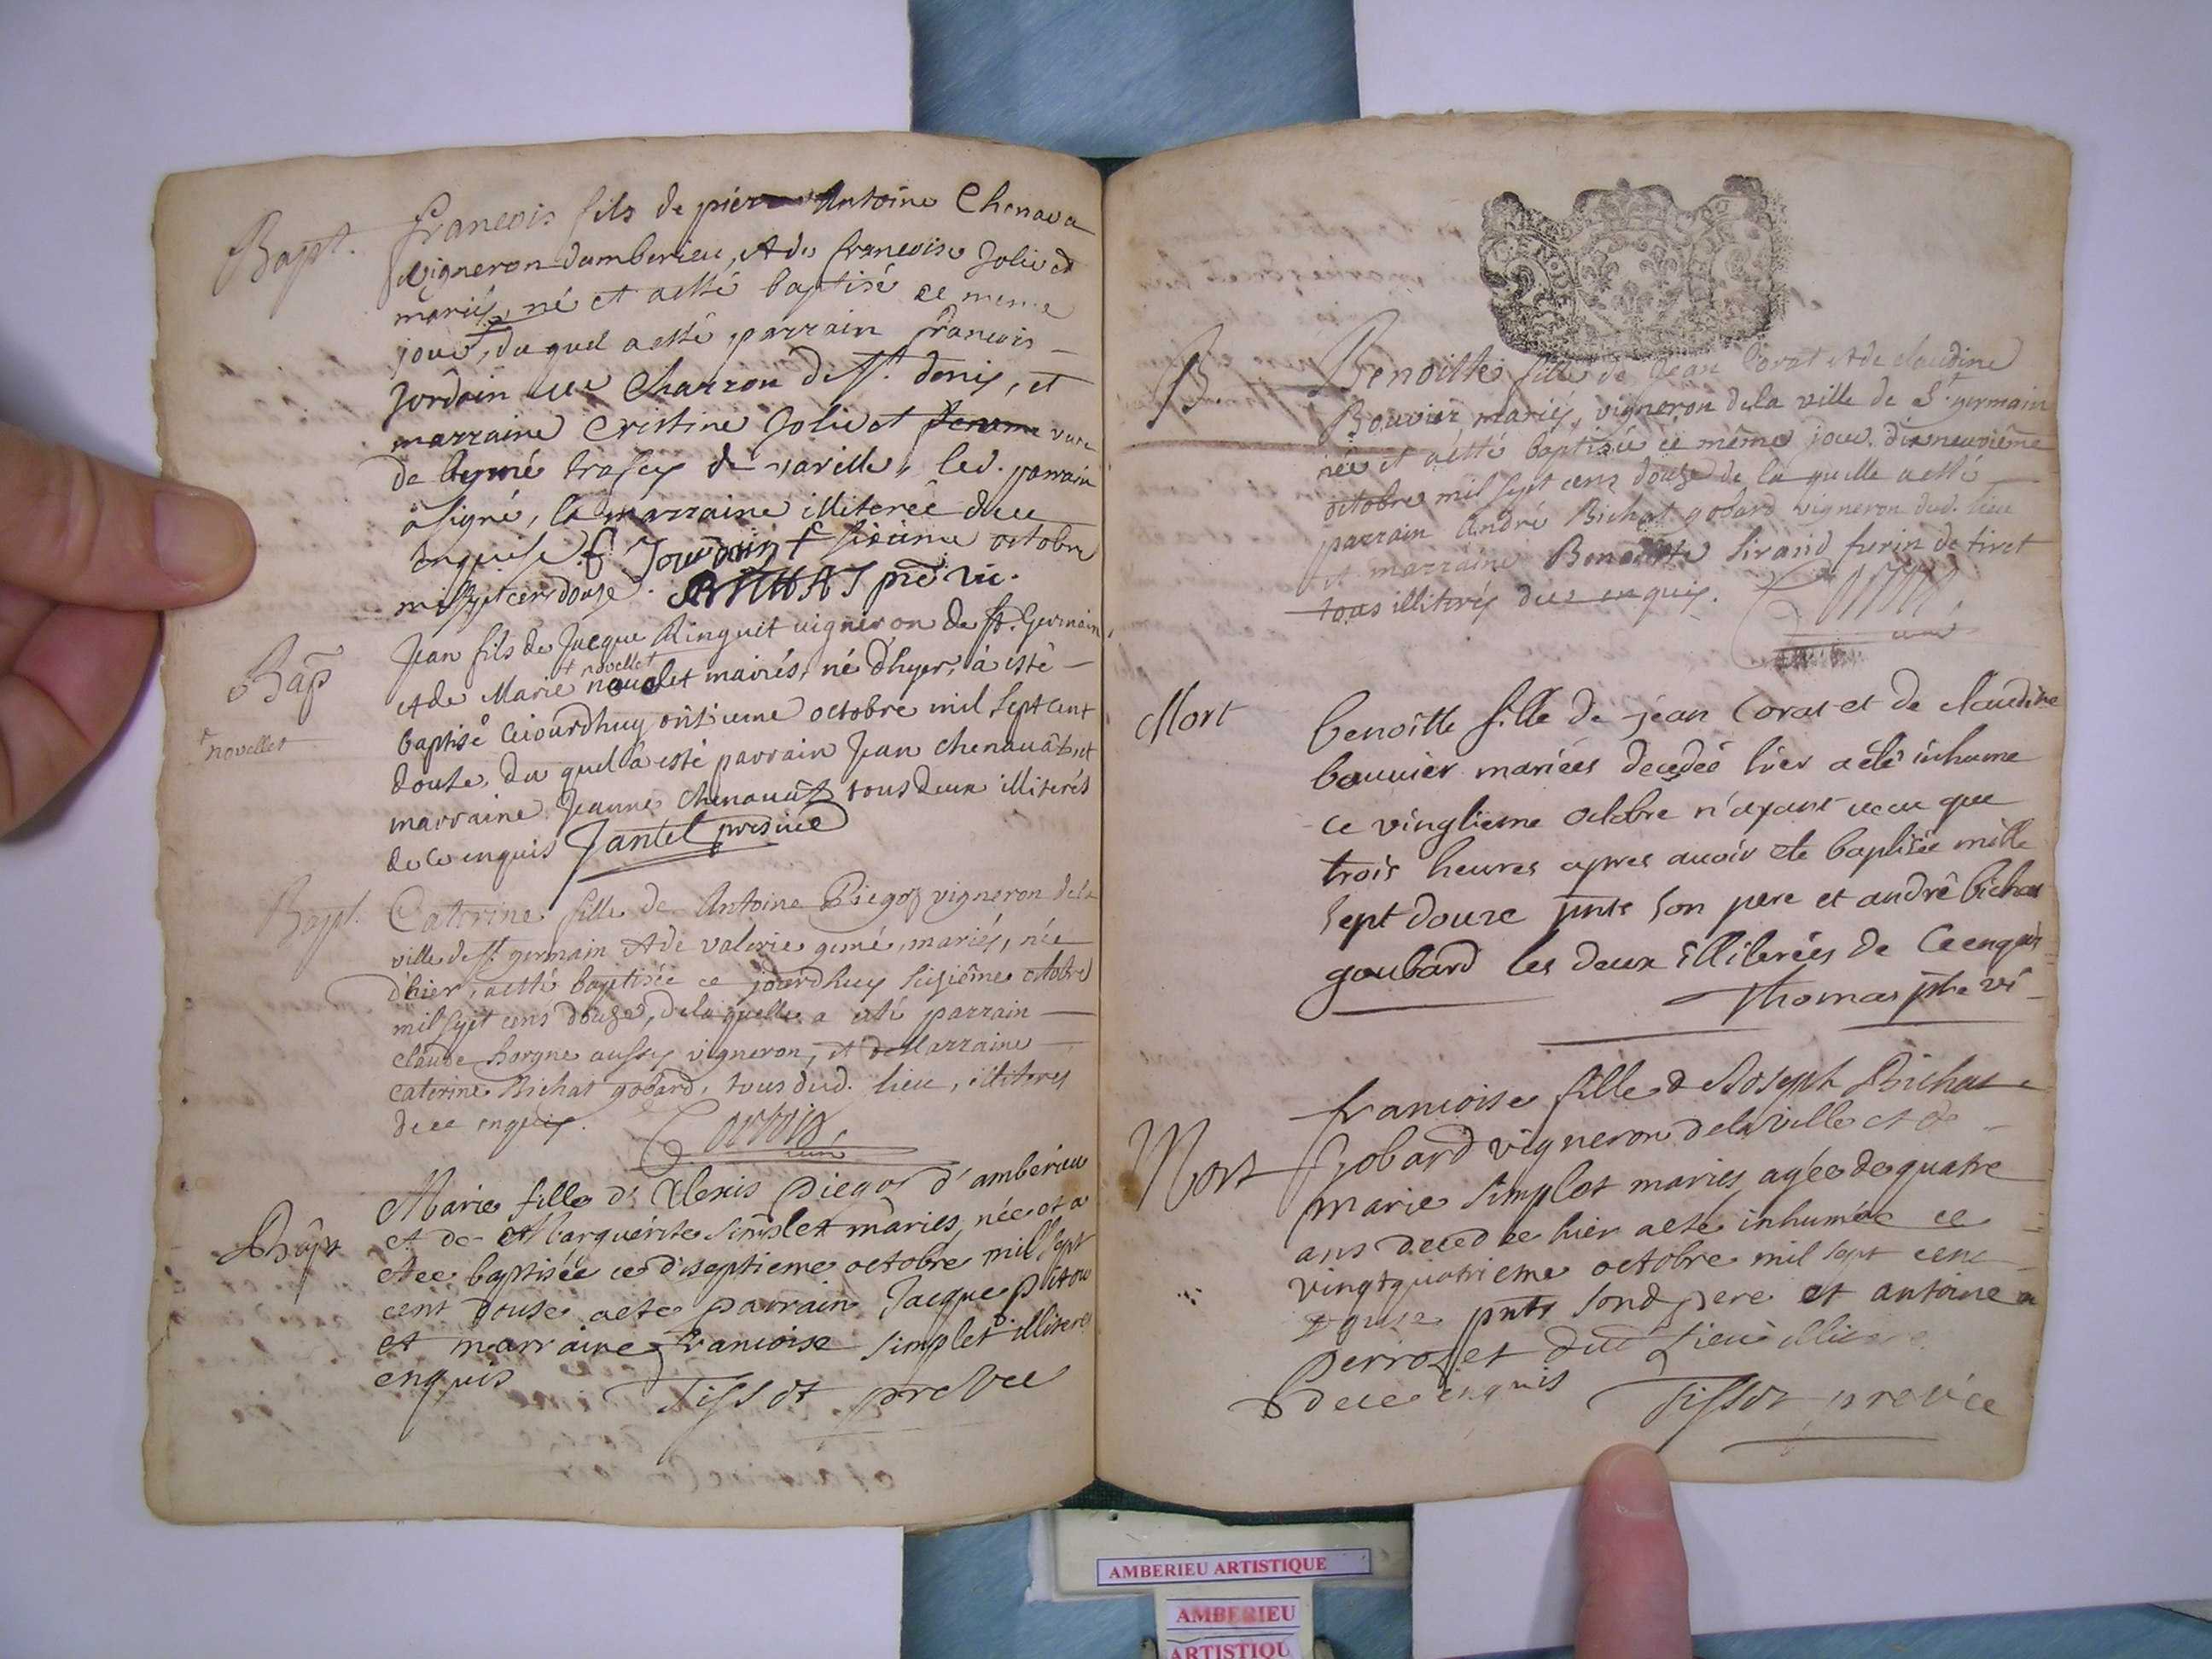 Bapt.
francois fils de pierre Antoine Chenava
vigneron damberieu, et de francoise Joliet
mariés, né et aesté baptisé ce meme
jour, du quel a esté parrain francois
Jordain Charron de st. denis, et
marraine Cristine Joliet femme
de trasey de varille, led. parrain
a signé, la marraine illiterée dece
enquise. f Jourdain f sixieme octobre
mil sept cens douze. pre vic.
Bap
Jean fils de Jacque Ringuet vigneron de st. Germain
+ novellet
et de Marie nouelet mairés, né dhyer, à esté
baptisé ceiourdhuy onsieme octobre mil sept cent
+ novellet
douse, du quel à esté parrain Jean chenauât, et
marraine Jeanne chenauât tous deux illiterés
de ce enquis Jantel pre vice
Bapt.
Caterine fille de Antoine Piegoz vigneron dela
ville de st. germain et de valerie gemé, mariés, née
d'hier, aesté baptisée ce jourdhuy seisiême octobre
mil sept cens douze, de laquelle a esté parrain
claude horgne aussy vigneron, et de Marraine
caterine Bichat gobard, tous dud. lieu, illiteres
de ce enquis.
curé
Bapt
Marie fille d'Alexis Piegoz d'amberieu
et de Marguerite Simplet maries, née et a
etee baptisée ce diseptieme octobre mil sept
cent douse a este parrain Jacque pitou
et marraine francoise simplet illiteres
enquis Tissot pre vice
B.
Benoitte fille de Jean Corat et de claudine
Bouvier mariés, vigneron dela ville de St. germain
née et aésté baptisée ce même jour. dixneuvième
octobre mil sept cens douze de la quelle aesté
parrain André Bichat gobard vigneron dud. lieu
et marraine Benoitte Sirand de tiret
tous illiterés dece enquis.
curé
Mort
benoitte fille de jean Corat et de claudine
bouuier mariées decedée hier a été inhume
ce vingtieme octobre n'ayant vecu que
trois heures apres auoir ete baptisée mille
sept douze pnts son pere et andrê bichat
goubard les deux illiterées de ce enquis
Thomas ptre vi
Mort
francoise fille de Joseph Bichat
Gobard vigneron de la ville et de
marie Simplet maries agée de quatre
ans decedee hier aeté inhumée ce
vingtquatrieme octobre mil sept cent
douse pnts sond pere et antoine
perrozet dud Lieu illitere
dece enquis Tissot pre vice
AMBERIEU ARTISTIQUE
AMBERIEU
ARTISTIQU